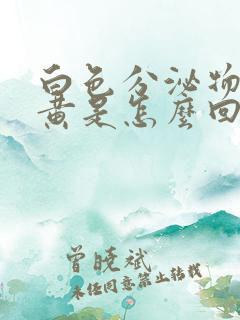 白色分泌物
黄是怎麼回
曾晓斌
未任同意禁止转载